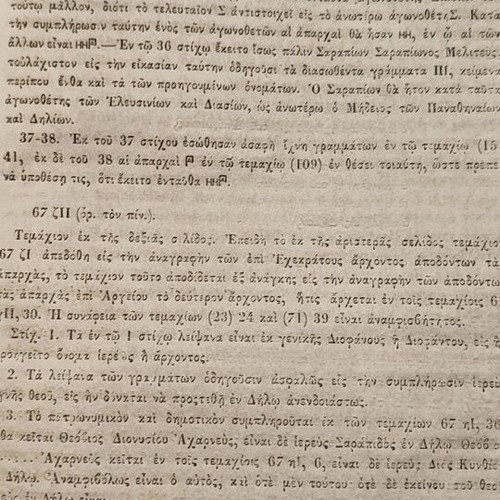 τούτῳ μᾶλλον, διότι τὸ τελευταῖον Σ ἀντιστοιχεῖ εἰς τὸ ἀνωτέρω ἀγωνοθέτης. Κατὰ
τὴν συμπλήρωσιν ταύτην ἑνὸς τῶν ἀγωνοθετῶν αἱ ἀπαρχαὶ θὰ ἦσαν ΗΗ, ἐν ᾧ αἱ τῶν
ἄλλων εἶναι ΗΗ𐅄.—Ἐν τῷ 36 στίχῳ ἔκειτο ἴσως πάλιν Σαραπίων Σαραπίωνος Μελιτεύς.
τοὐλάχιστον εἰς τὴν εἰκασίαν ταύτην ὁδηγοῦσι τὰ διασωθέντα γράμματα ΠΙ, κείμενα
περίπου ἔνθα καὶ τὰ τῶν προηγουμένων ὀνομάτων. Ὁ Σαραπίων θὰ ἦτον κατὰ ταῦτα
ἀγωνοθέτης τῶν Ἐλευσινίων καὶ Διασίων, ὡς ἀνωτέρω ὁ Μήδειος τῶν Παναθηναίων
καὶ Δηλίων.
37-38. Ἐκ τοῦ 37 στίχου ἐσώθησαν ἀσαφῆ ἴχνη γραμμάτων ἐν τῷ τεμαχίῳ (15
41, ἐκ δὲ τοῦ 38 αἱ ἀπαρχαὶ 𐅄 ἐν τῷ τεμαχίῳ (109) ἐν θέσει τοιαύτῃ, ὥστε πρέπε
νὰ ὑποθέσῃ τις, ὅτι ἔκειτο ἐνταῦθα ΗΗ𐅄.
67 ζΙΙ (ὅρ. τὸν πίν.).
Τεμάχιον ἐκ τῆς δεξιᾶς σελίδος. Ἐπειδὴ τὸ ἐκ τῆς ἀριστερᾶς σελίδος τεμάχιον
67 ζΙ ἀπεδόθη εἰς τὴν ἀναγραφὴν τῶν ἐπὶ Ἐχεκράτους ἄρχοντος ἀποδόντων τὰ
ἀπαρχὰς, τὸ τεμάχιον τοῦτο ἀποδίδεται ἐξ ἀνάγκης εἰς τὴν ἀναγραφὴν τῶν ἀποδόντω
τὰς ἀπαρχὰς ἐπὶ Ἀργείου τὸ δεύτερον ἄρχοντος, ἥτις ἄρχεται ἐν τοῖς τεμαχίοις 6
ΙΙ, 30. Ἡ συνάφεια τῶν τεμαχίων (23) 24 καὶ (71) 39 εἶναι ἀναμφισβήτητος.
Στίχ. 1. Τὰ ἐν τῷ 1 στίχῳ λείψανα εἶναι ἐκ γενικῆς Διοφάνους ἢ Διοφάντου, εἰς ἣ
προηγεῖτο ὄνομα ἱερέως ἢ ἄρχοντος.
2. Τὰ λείψανα τῶν γραμμάτων ὁδηγοῦσιν ἀσφαλῶς εἰς τὴν συμπλήρωσιν ἱερεὺ
γνῆς θεοῦ, εἰς ἣν δύναται νὰ προστεθῇ ἐν Δήλῳ ἀνενδοιάστως.
3. Τὸ πατρωνυμικὸν καὶ δημοτικὸν συμπληροῦται ἐκ τῶν τεμαχίων 67 ηΙ, 36
θα κεῖται Θεόβιος Διονυσίου Ἀχαρνεύς, εἶναι δὲ ἱερεὺς Σαράπιδος ἐν Δήλῳ. Θεόβιο
...... Ἀχαρνεὺς κεῖται ἐν τοῖς τεμαχίοις 67 ηΙ, 6, εἶναι δὲ ἱερεὺς Διὸς Κυνθίο
Δήλῳ. Ἀναμφιβόλως εἶναι ὁ αὐτός, καὶ ὁτὲ μὲν τούτου ὁτὲ δὲ ἐκείνου τοῦ θεο
εὺς ἐν Δήλῳ εἶναι